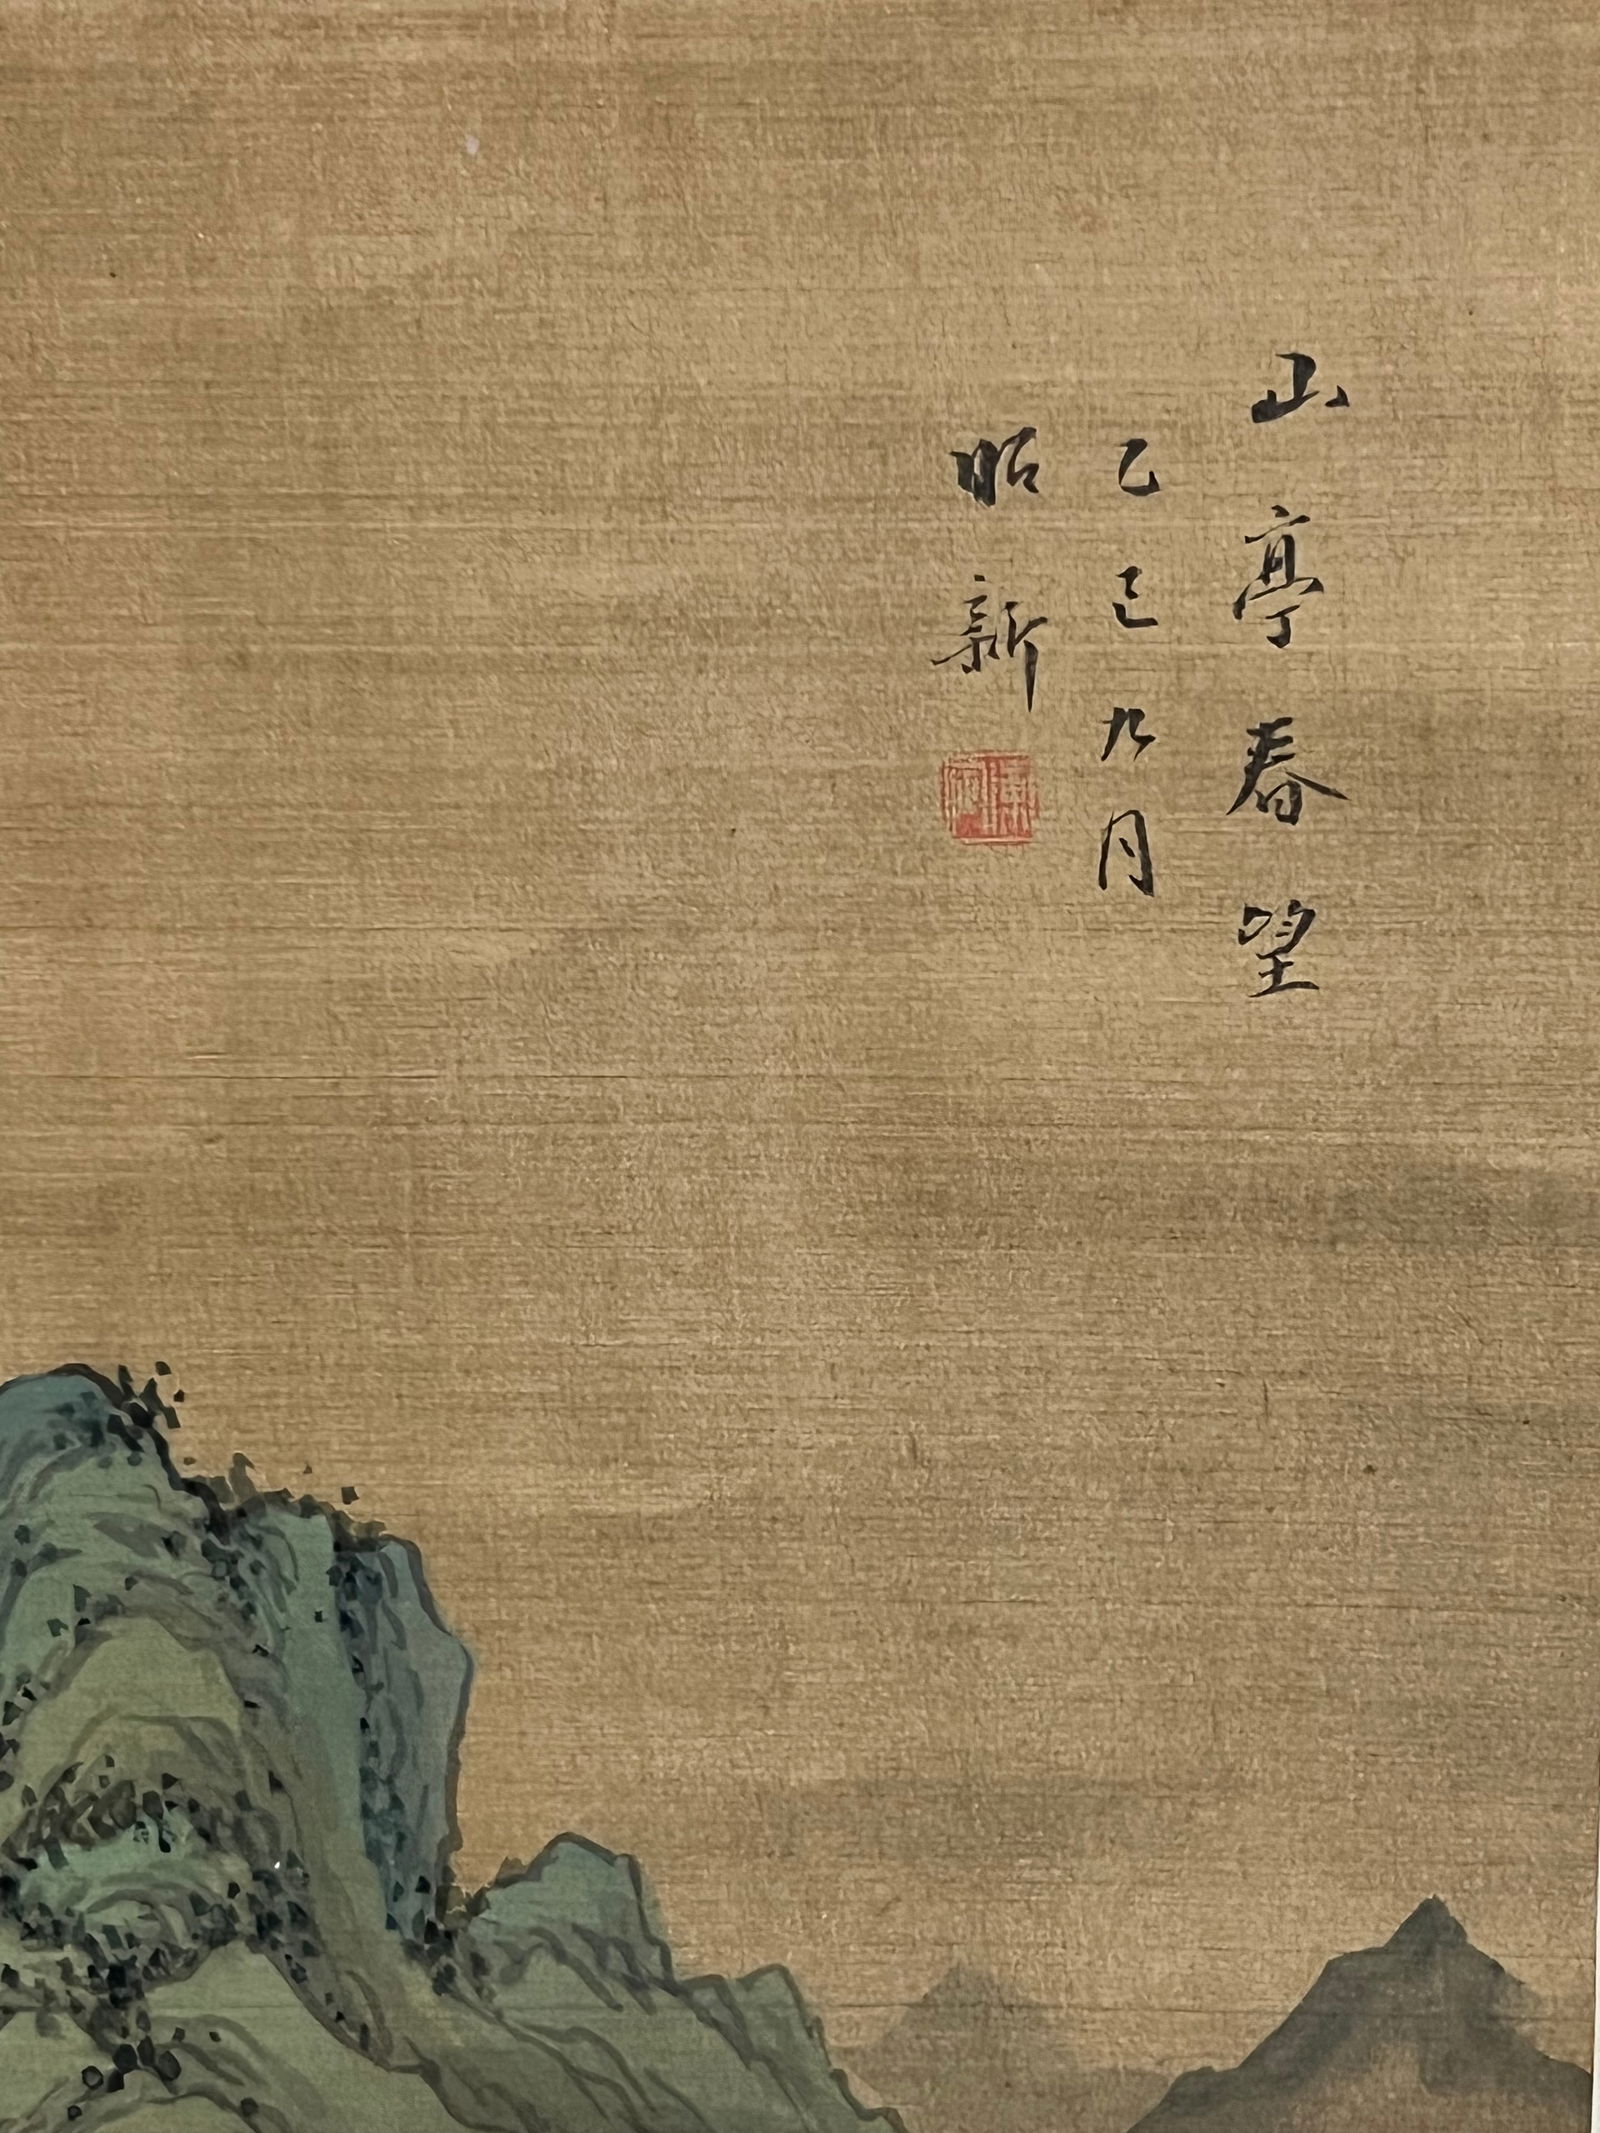 山亭春望
乙巳九月
昭新